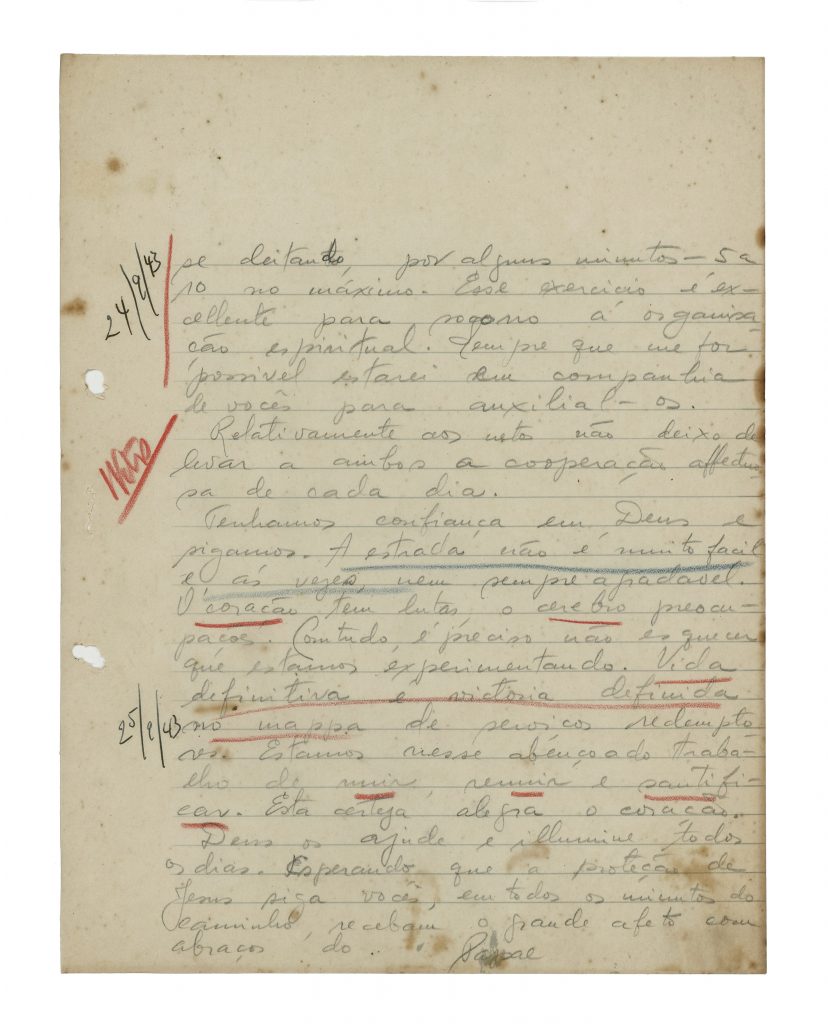 se deitando, por alguns minutos – 5 a
10 no máximo. Esse exercicio é ex-
cellente para socorro á organisa-
ção espiritual. Sempre que me for
possivel estarei em companhia
de vocês para auxilial-os.
Relativamente aos netos não deixo de
levar a ambos a cooperação affectuo-
sa de cada dia.
Tenhamos confiança em Deus e
sigamos. A estrada não é muito facil
e ás vezes, nem sempre agradavel.
O coração tem lutas, o cerebro preocu-
pações. Comtudo, é preciso não esquecer
que estamos experimentando. Vida
definitiva e victoria definida
no mappa de serviços redempto
res. Estamos nesse abençoado traba-
lho de unir, reunir e santifi-
car. Esta certeza alegra o coração.
Deus os ajude e illumine todos
os dias. Esperando que a proteção de
Jesus siga vocês, em todos os minutos do
caminho, recebam o grande afeto com
abraços do Papae
24/2/43
25/2/43